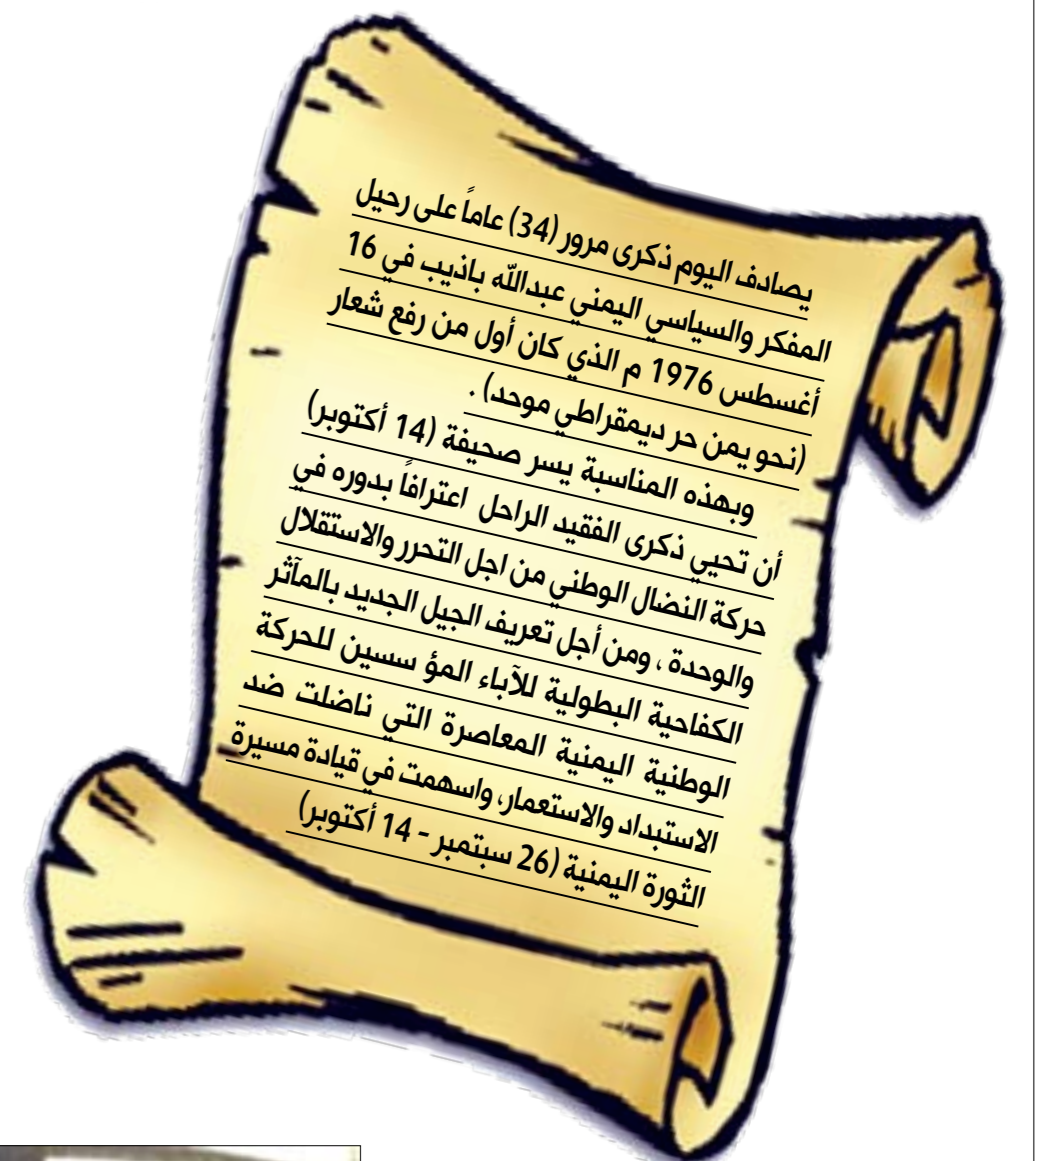 يصادف اليوم ذكرى مرور (34) عاماً على رحيل
المفكر والسياسي اليمني عبدالله باذيب في 16
أغسطس 1976 م الذي كان أول من رفع شعار
(نحو يمن حر ديمقراطي موحد) .
وبهذه المناسبة يسر صحيفة (14 أكتوبر)
أن تحيي ذكرى الفقيد الراحل اعترافاً بدوره في
حركة النضال الوطني من اجل التحرر والاستقلال
والوحدة ، ومن أجل تعريف الجيل الجديد بالمآثر
الكفاحية البطولية للآباء المؤ سسين للحركة
الوطنية اليمنية المعاصرة التي ناضلت ضد
الاستبداد والاستعمار، واسهمت في قيادة مسيرة
الثورة اليمنية (26 سبتمبر - 14 أكتوبر)